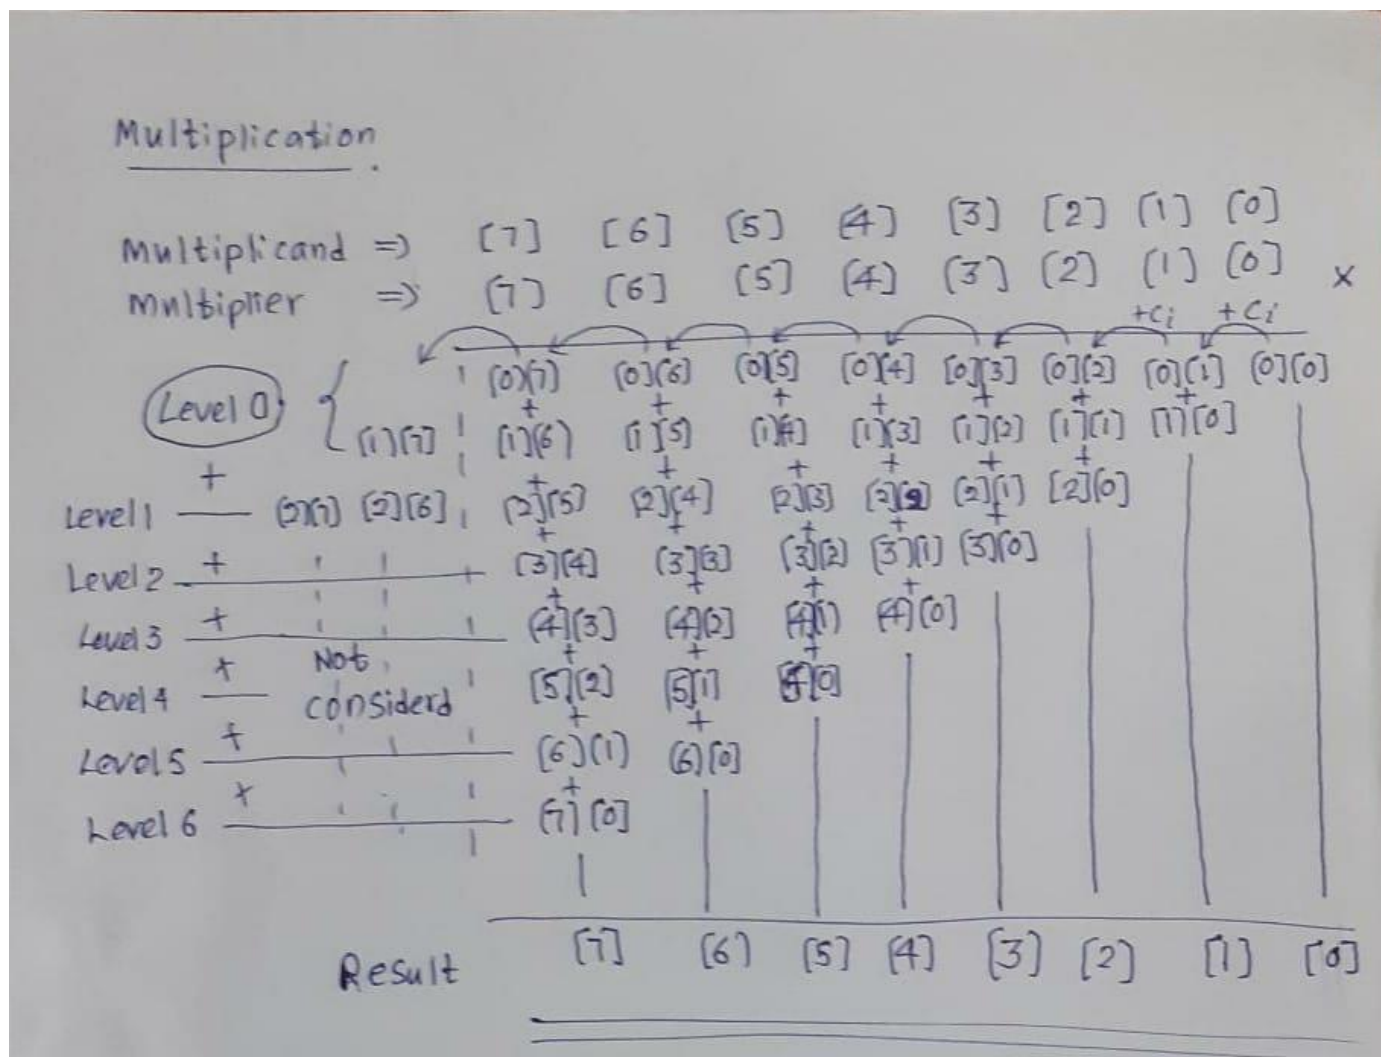 Multiplication.
Multiplicand => [7] [6] [5] [4] [3] [2] [1] [0]
Multiplier => [7] [6] [5] [4] [3] [2] [1] [0] ×
+Ci +Ci
[0][7] [0][6] [0][5] [0][4] [0][3] [0][2] [0][1] [0][0]
Level 0
+ + + + + + +
[1][7] [1][6] [1][5] [1][4] [1][3] [1][2] [1][1] [1][0]
+ + + + + + +
Level 1 [2][7] [2][6] [2][5] [2][4] [2][3] [2][2] [2][1] [2][0]
+ + + + +
Level 2 + [3][4] [3][3] [3][2] [3][1] [3][0]
+ + + +
Level 3 + [4][3] [4][2] [4][1] [4][0]
Not
+ + + +
Level 4 considerd [5][2] [5][1] [5][0]
+ +
Level 5 + [6][1] [6][0]
+
Level 6 + [7][0]
Result [7] [6] [5] [4] [3] [2] [1] [0]